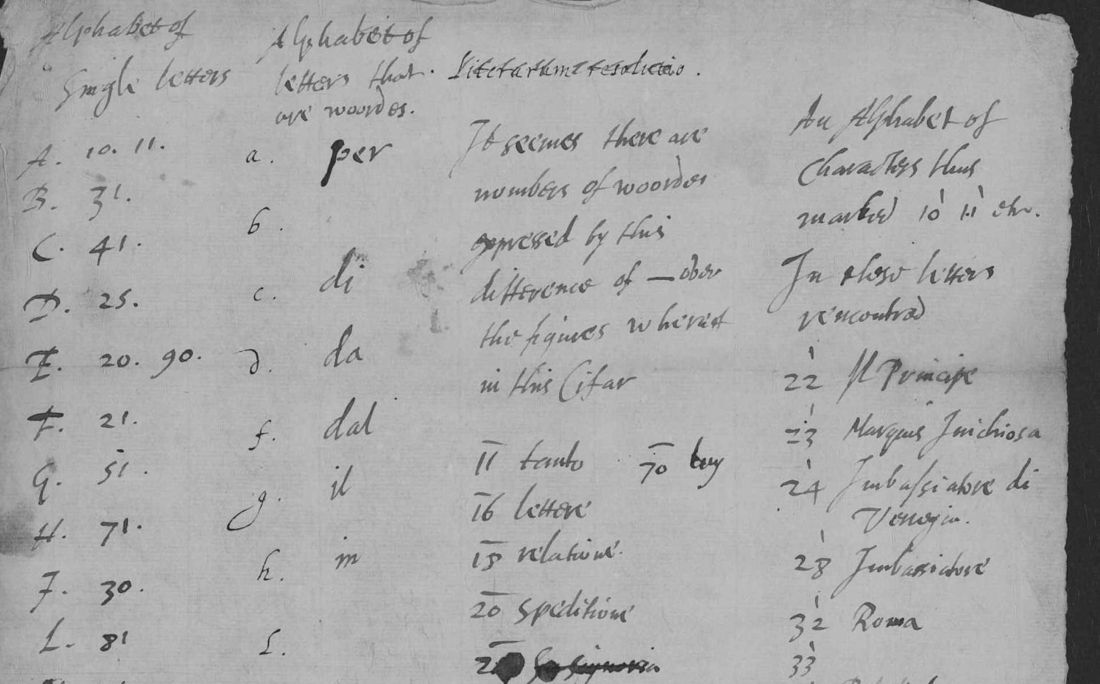 Alphabet of
Single letters
A. 10. 11.
B. 31.
C. 41.
D. 25.
E. 20. 90.
F. 21.
G. 51.
H. 71.
J. 30.
L. 81
Alphabet of
letters that
are woordes.
a. per
b.
c. di
d. da
f. dal
g. il
h. in
L.
It seemes there are
nombers of woordes
expressed by this
difference of — over
the figures whereof
in this Cifar
11 tanto 70 luy
16 lettere
18 relatione.
20 speditione
An Alphabet of
Characters thus
marked 10 11 etc.
In these letters
rencontred
22 Il Principe
23 Marquis Inichiosa
24 Imbassiatore di
Venezia.
28 Imbassiatore
32 Roma
33